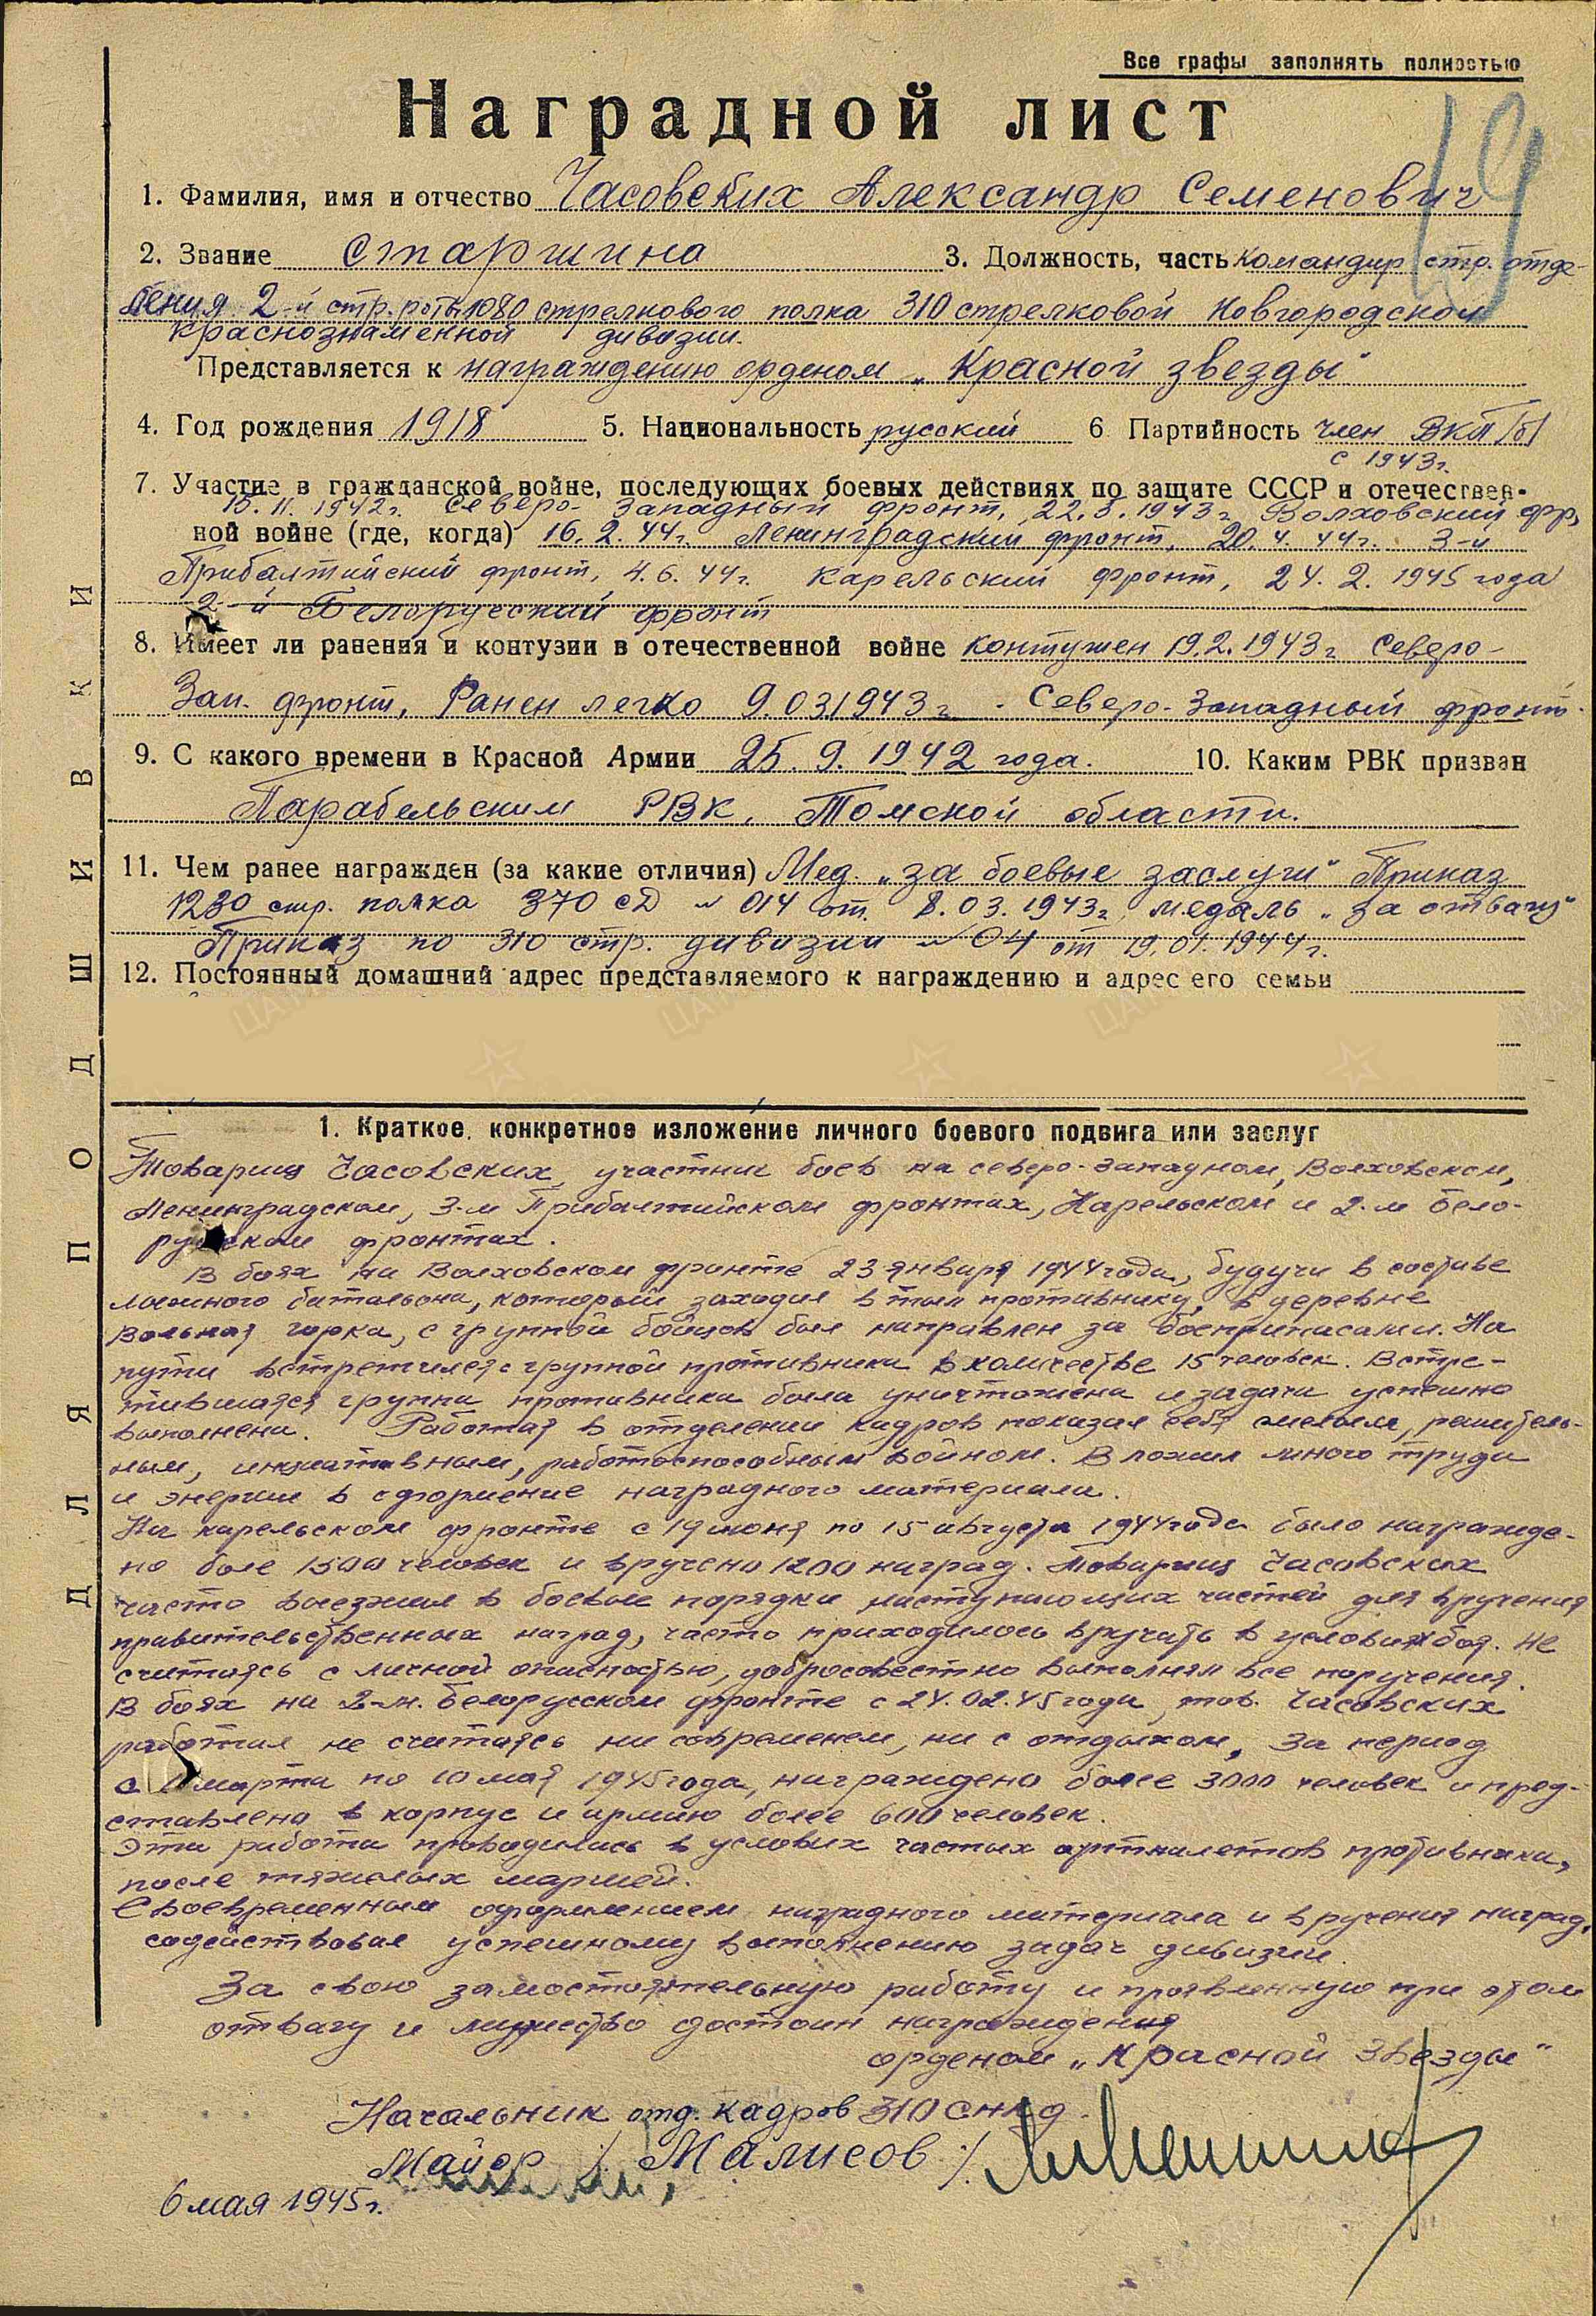 Все графы заполнять полностью
19
Наградной лист
1. Фамилия, имя и отчество Часовских Александр Семенович
2. Звание Старшина 3. Должность, часть Командир стр. отде-
ления 2-й стр. роты 1080 стрелкового полка 310 стрелковой Новгородской
Краснознаменной дивизии.
Представляется к награждению орденом „Красной звезды"
4. Год рождения 1918 5. Национальность русский 6 Партийность член ВКП/б/
с 1943г.
7. Участие в гражданской войне, последующих боевых действиях по защите СССР и отечествен-
15.11.1942г. Северо-Западный фронт, 22.8.1943г Волховский фр,
ной войне (где, когда) 16.2.44г. Ленинградский фронт, 20.4.44г. 3-й
Прибалтийский фронт, 4.6.44г. Карельский фронт, 24.2.1945 года
2-й Белорусский фронт
8. Имеет ли ранения и контузии в отечественной войне контужен 19.2.1943г Северо-
Зап. фронт, Ранен легко 9.03.1943г. Северо-Западный фронт.
9. С какого времени в Красной Армии 25.9.1942 года. 10. Каким РВК призван
Парабельским РВК, Томской области.
11. Чем ранее награжден (за какие отличия) Мед. „за боевые заслуги" Приказ
1230 стр. полка 370 сД № 014 от 8.03.1943г, медаль „За отвагу"
Приказ по 310 стр. дивизии № 04 от 19.01.1944г.
12. Постоянный домашний адрес представляемого к награждению и адрес его семьи
ДЛЯ ПОДШИВКИ
1. Краткое, конкретное изложение личного боевого подвига или заслуг
Товарищ Часовских, участник боев на северо-западном, Волховском,
Ленинградском, 3-м Прибалтийском фронтах, Карельском и 2-м Бело-
русском фронтах.
В боях на Волховском фронте 23 января 1944 года, будучи в составе
лыжного батальона, который заходил в тыл противнику, в деревне
Вольная горка, с группой бойцов был направлен за боеприпасами. На
пути встретился с группой противника в количестве 15 человек. Встре-
тившаяся группа противника была уничтожена и задача успешно
выполнена. Работая в отделении кадров показал себя смелым, решитель-
ным, инициативным, работоспособным воином. Вложил много труда
и энергии в оформление наградного материала.
На карельском фронте с 19 июня по 15 августа 1944 года было награжде-
но боле 1500 человек и вручено 1200 наград. Товарищ Часовских
часто выезжал в боевые порядки наступающих частей для вручения
правительственных наград, часто приходилось вручать в условиях боя. Не
считаясь с личной опасностью, добросовестно выполнял все поручения.
В боях на 2-м. Белорусском фронте с 24.02.45 года, тов. Часовских
работал не считаясь ни с временем, ни с отдыхом, за период
с марта по 10 мая 1945 года, награждено более 3000 человек и пред-
ставлено в корпус и армию более 600 человек.
Эта работа проводилась в услових частых артналетов противника,
после тяжелых маршей.
Своевременным оформлением наградного материала и вручения наград,
содействовал успешному выполнению задач дивизии.
За свою самостоятельную работу и проявленную при этом
отвагу и мужество достоин награждения
орденом „Красной Звезды"
Начальник отд. кадров 310 снкд.
Майор / Малисов /
6 мая 1945г.